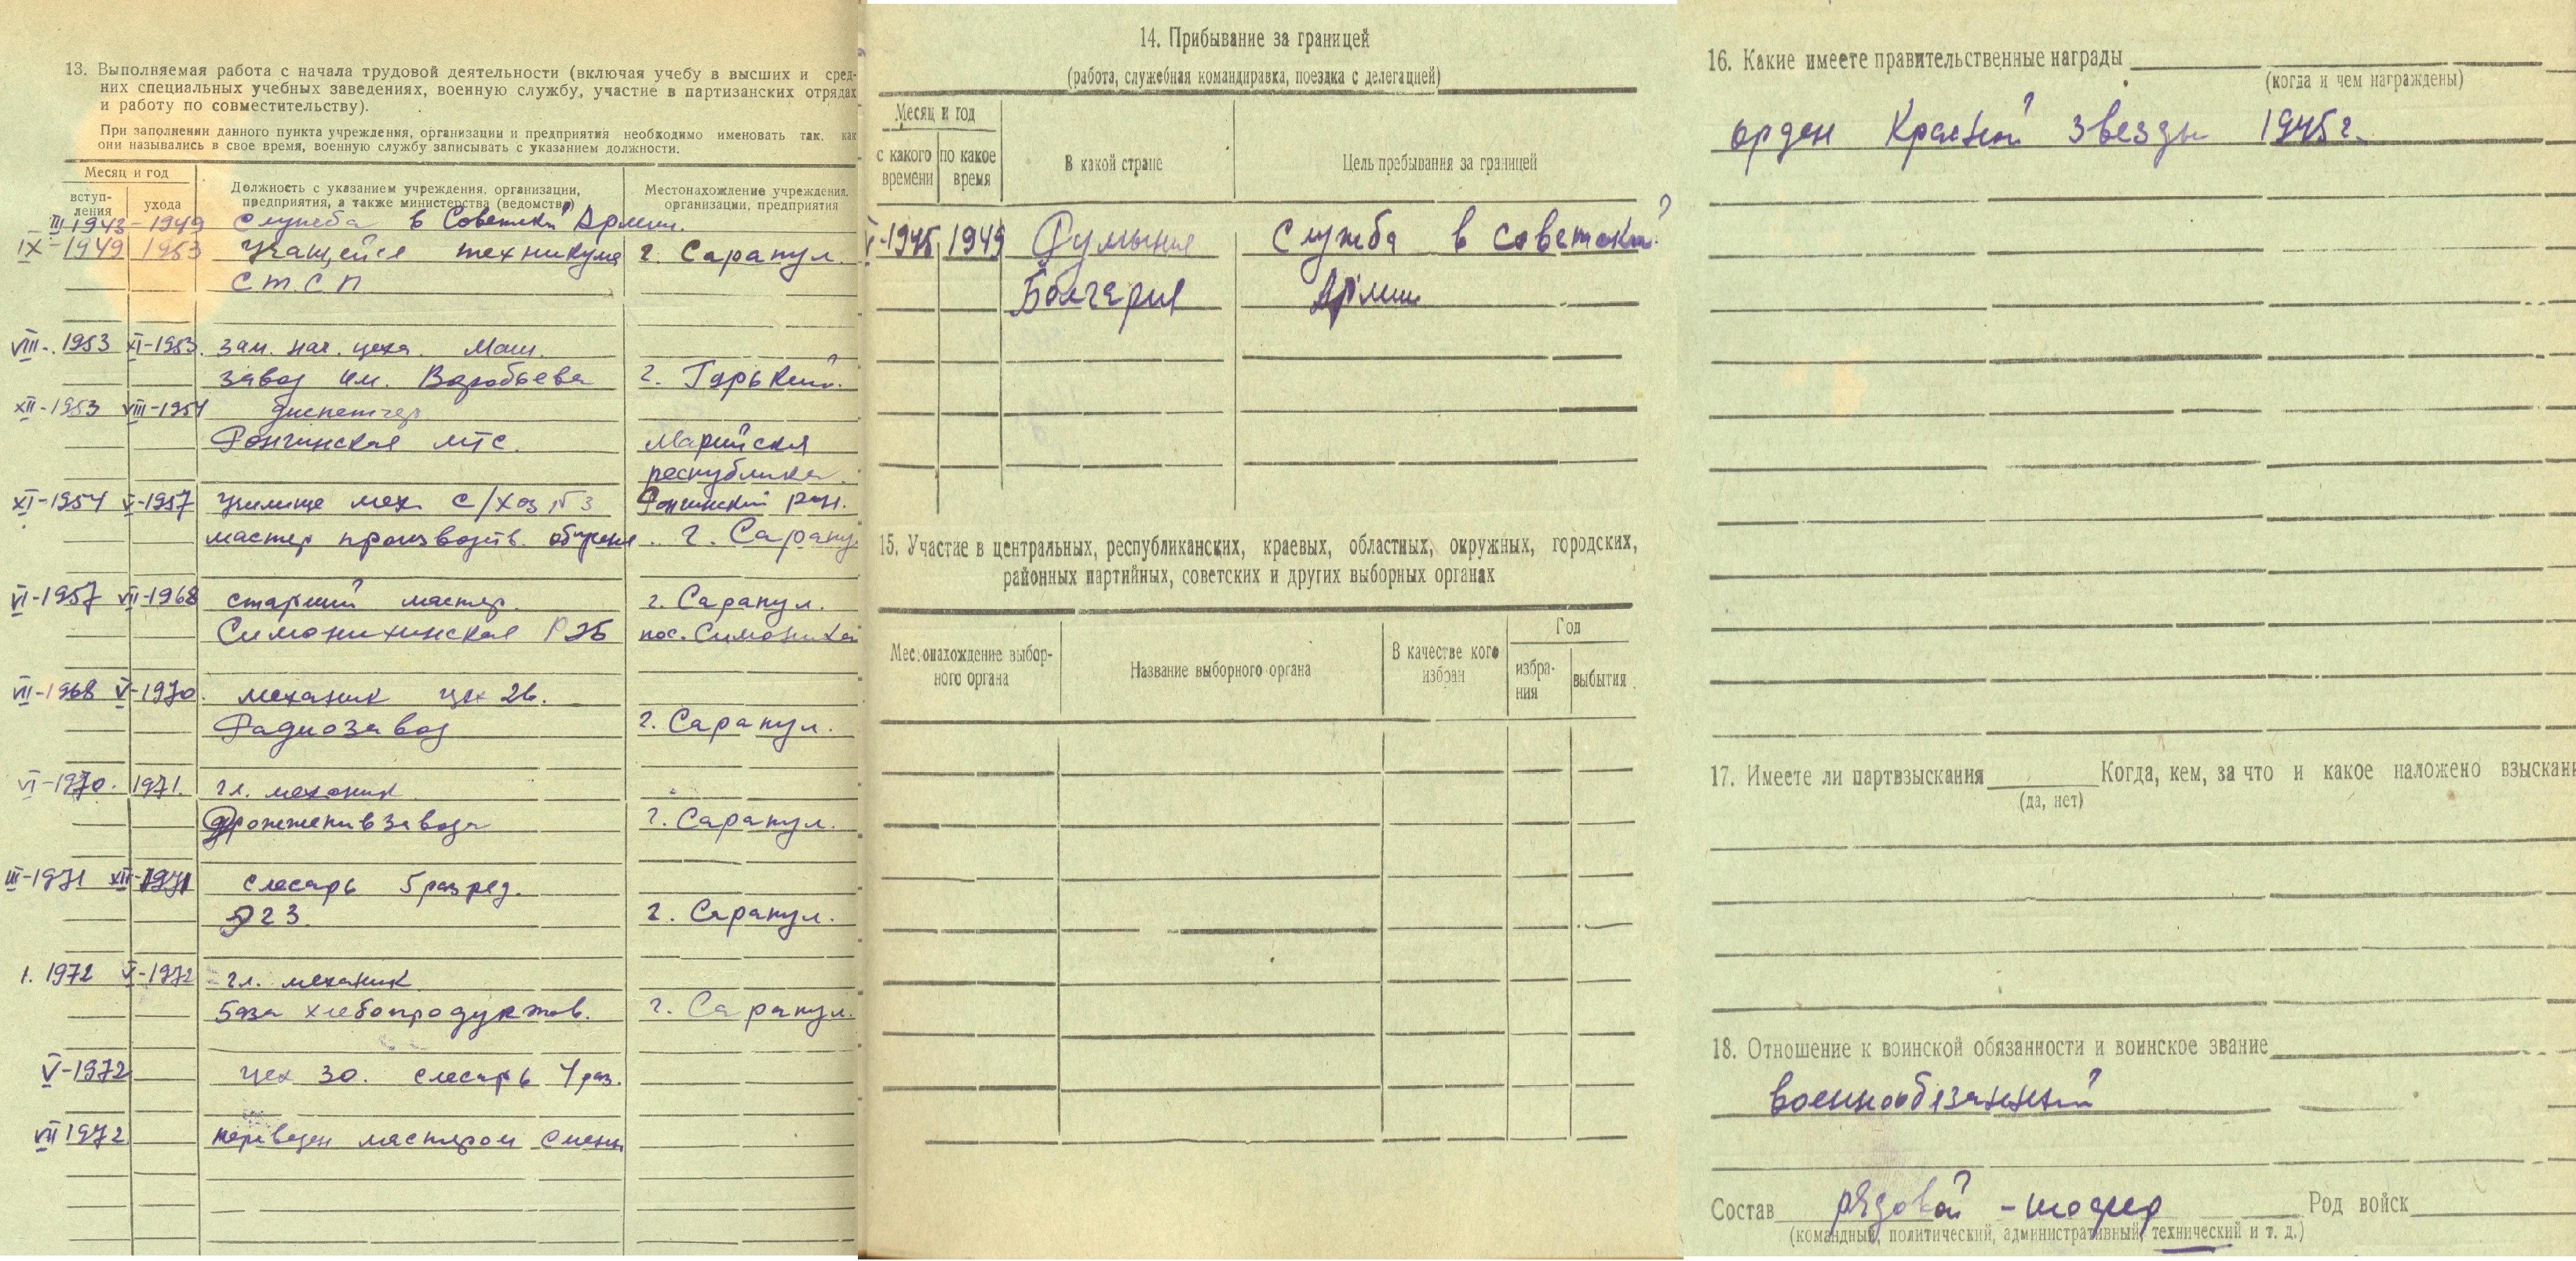 13. Выполняемая работа с начала трудовой деятельности (включая учебу в высших и сред-
них специальных учебных заведениях, военную службу, участие в партизанских отрядах
и работу по совместительству).
При заполнении данного пункта учреждения, организации и предприятия необходимо именовать так, как
они назывались в свое время, военную службу записывать с указанием должности.
Месяц и год
вступ-
ления
ухода
Должность с указанием учреждения, организации,
предприятия, а также министерства (ведомства)
Местонахождение учреждения,
организации, предприятия
III 1943 - 1949 служба в Советской Армии.
IX-1949 1953 учащейся техникума г. Сарапул.
СТСП
VIII-1953 XI-1953. зам. нач. цеха. Маш.
завод им. Воробьева г. Горький.
XII-1953 VIII-1954 диспетчер
Ронгинская МТС. Марийская
республика.
XI-1954 V-1957 училище мех. с/хоз №3 Ронгинский рон.
мастер производств. обучения. г. Сарапу
VI-1957 VII-1968 старший мастер. г. Сарапул.
Симонихинская РЭБ пос. Симониха
VII-1968 V-1970. механик цех 26.
Радиозавод г. Сарапул.
VI-1970. 1971. гл. механик
Дрожжепивзавода г. Сарапул.
III-1971 XII-1971 слесарь 5 разряд.
ЭГЗ. г. Сарапул.
1. 1972 V-1972 гл. механик
база хлебопродуктов. г. Сарапул.
V-1972 цех 30. слесарь 4 раз.
VII 1972 переведен мастером смены
14. Прибывание за границей
(работа, служебная командировка, поездка с делегацией)
Месяц и год
с какого
времени
по какое
время
В какой стране
Цель пребывания за границей
V-1945 1949 Румыния Служба в советской
Болгария Армии
15. Участие в центральных, республиканских, краевых, областных, окружных, городских,
районных партийных, советских и других выборных органах
Местонахождение выбор-
ного органа
Название выборного органа
В качестве кого
избран
Год
избра-
ния
выбытия
16. Какие имеете правительственные награды
(когда и чем награждены)
орден Красной Звезды 1945 г.
17. Имеете ли партвзыскания Когда, кем, за что и какое наложено взыскани
(да, нет)
18. Отношение к воинской обязанности и воинское звание
военнообязанный
Состав рядовой - шофер Род войск
(командный, политический, административный, технический и т. д.)